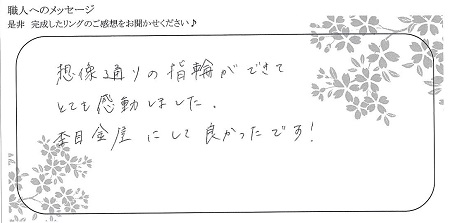 職人へのメッセージ
是非 完成したリングのご感想をお聞かせください♪
想像通りの指輪ができて
とても感動しました.
杢目金屋にして良かったです!